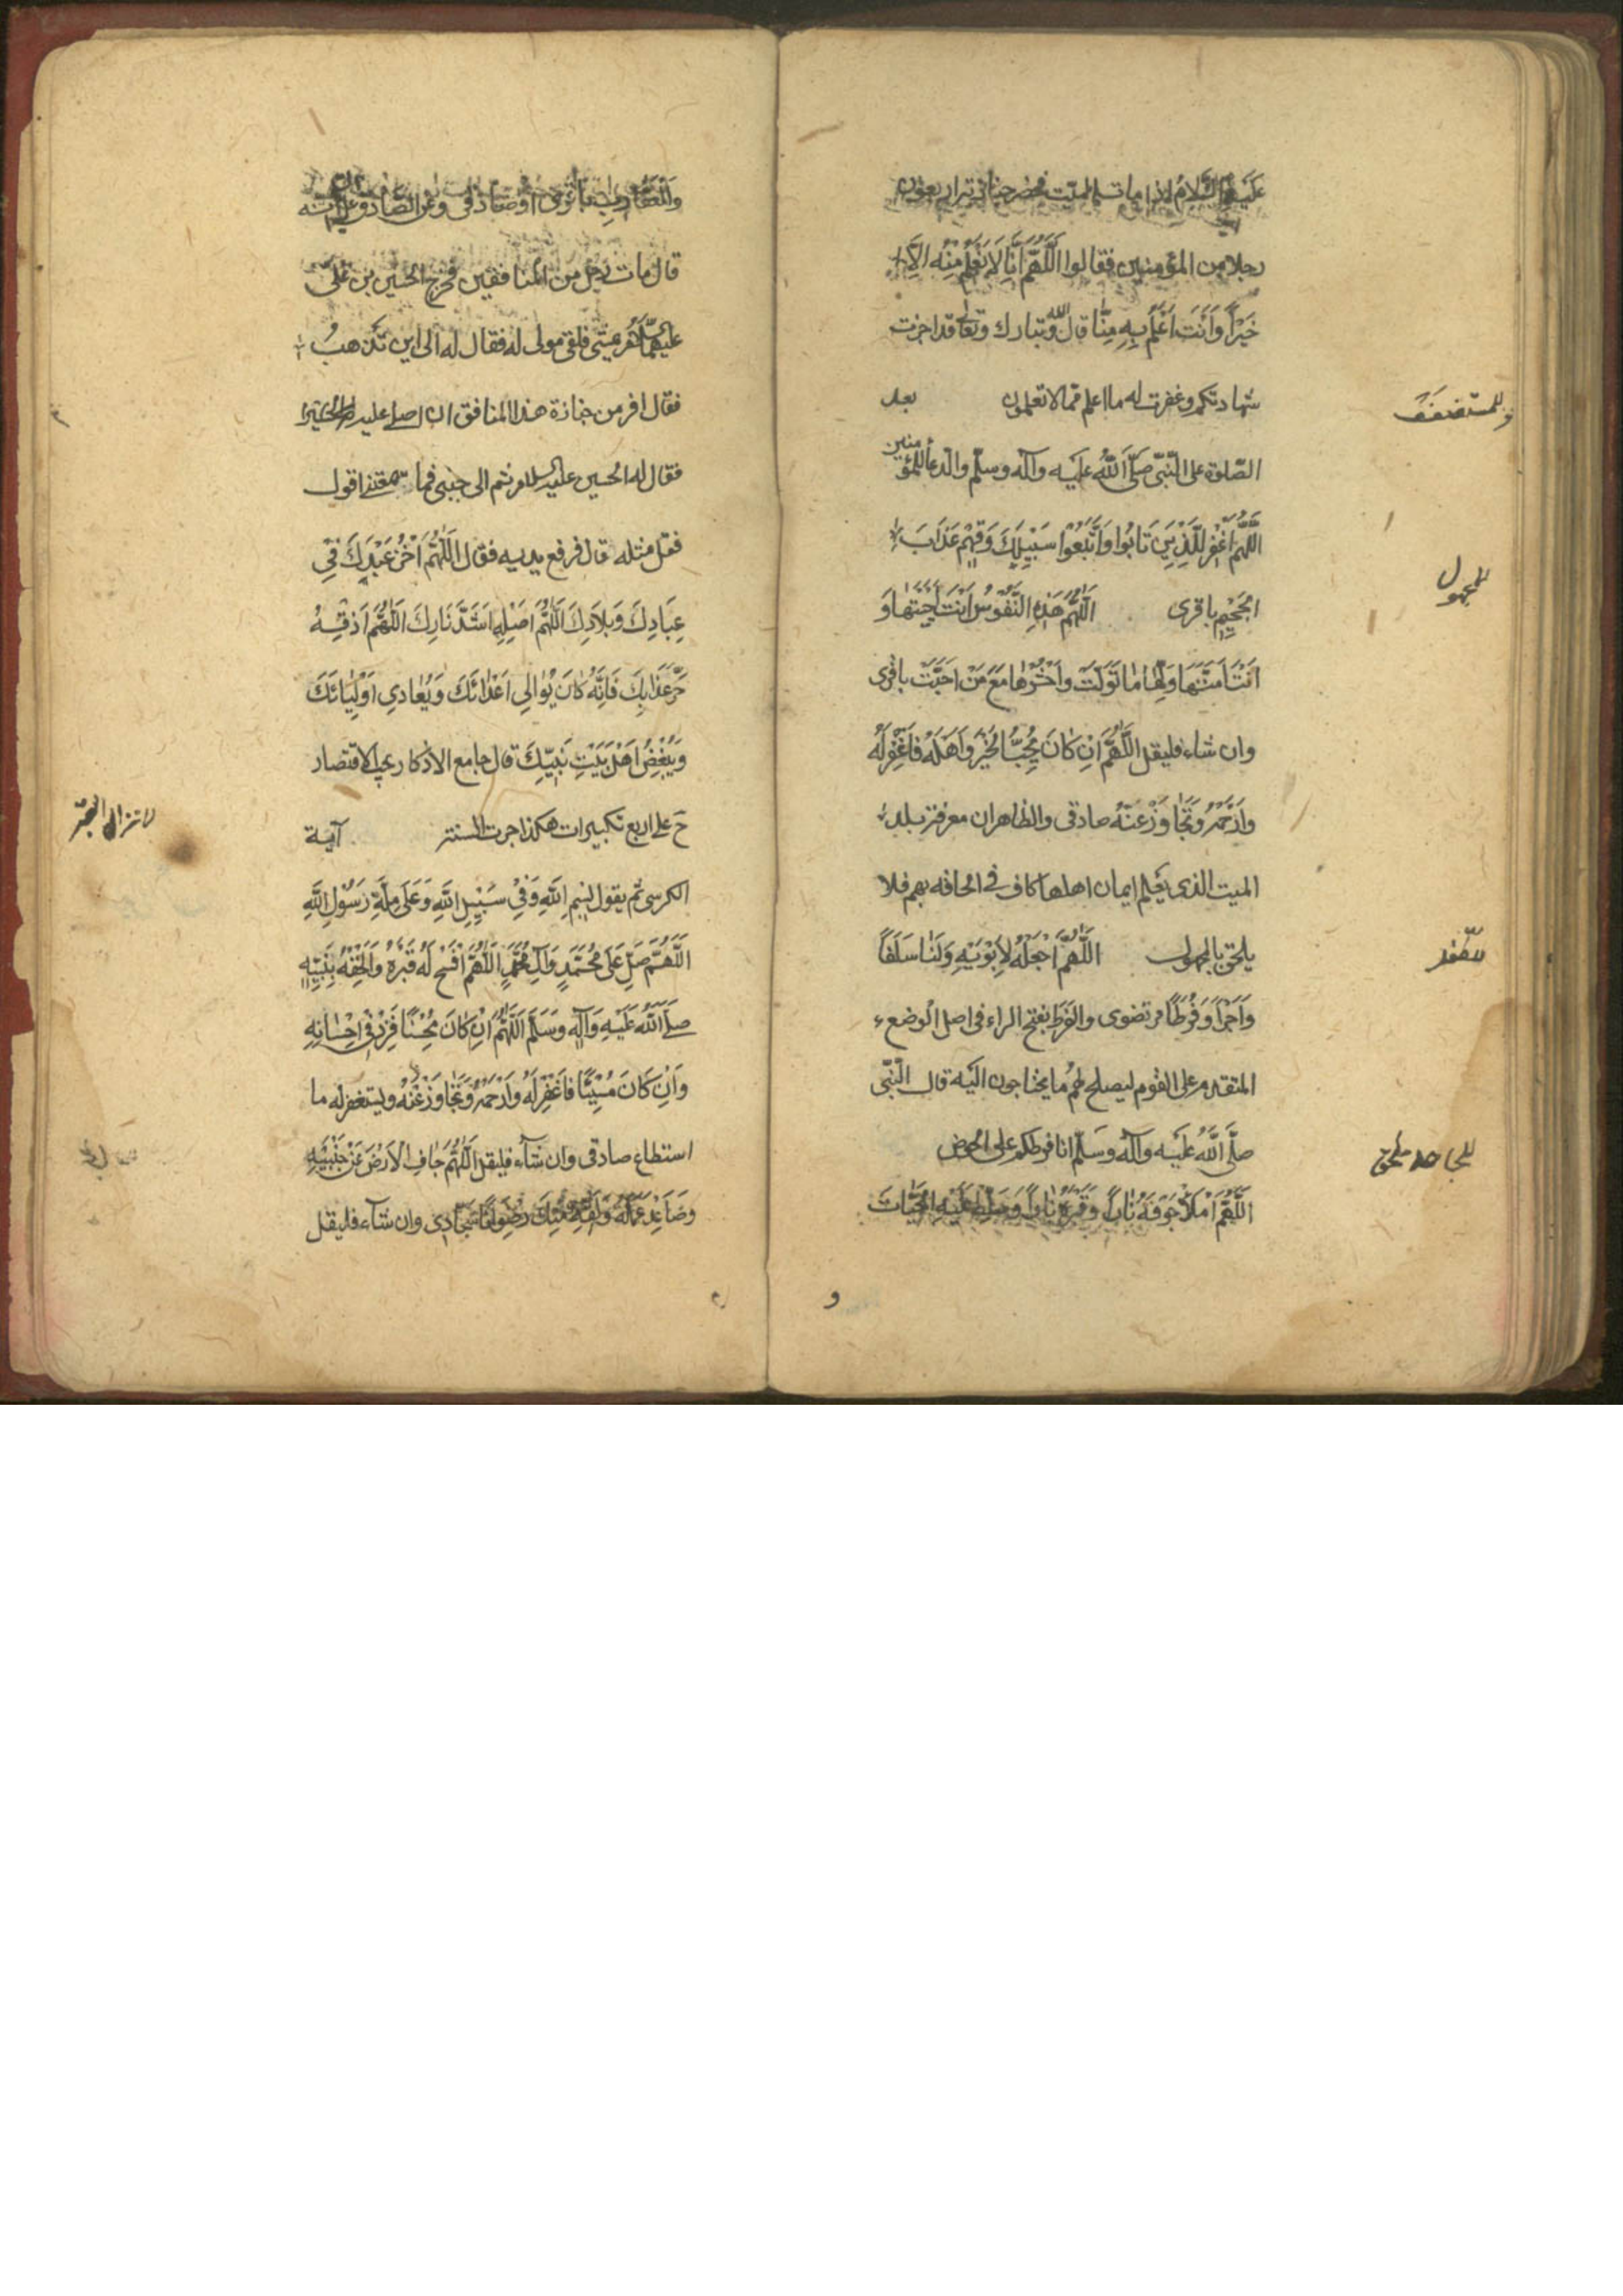 عليهما السلام اذا مات الميت فحضر جنازته اربعون
رجلا من المؤمنين فقالوا اَللّهُمَّ اِنَّا لَا نَعْلَمُ مِنْهُ اِلَّا
خَيْرًا وَاَنْتَ اَعْلَمُ بِهِ مِنَّا قال الله تبارك وتعالى قد اجزت
شهادتكم وغفرت له ما اعلم مما لا تعلمون بعد
وللمستضعف
الصلوة على النبي صَلَّى اللّهُ عَلَيْهِ وآلِهِ وسلّم والدعاء للمؤمنين
اَللّهُمَّ اغْفِرْ لِلَّذِينَ تَابُوا وَاتَّبَعُوا سَبِيلَكَ وَقِهِمْ عَذَابَ
للمجهول
الجَحِيمِ باقرى اَللّهُمَّ هَذِهِ النُّفُوسُ اَنْتَ اَحْيَيْتَهَا وَ
اَنْتَ اَمَتَّهَا وَلِّهَا مَا تَوَلَّتْ وَاحْشُرْهَا مَعَ مَنْ اَحَبَّتْ باقرى
وان شاء فليقل اَللّهُمَّ اِنْ كَانَ يُحِبُّ الْخَيْرَ وَاَهْلَهُ فَاغْفِرْ لَهُ
وَارْحَمْهُ وَتَجَاوَزْ عَنْهُ صادقى والظاهر ان معرفة بلد
الميت الذى يعلم ايمان اهلها كاف فى الحاقه بهم فلا
للطفل
يلحق بالمجهول اَللّهُمَّ اجْعَلْهُ لِاَبَوَيْهِ وَلَنَا سَلَفًا
وَاَجْرًا وَفَرَطًا مرتضوى والفرط بفتح الراء فى اصل الوضع
المتقدم على القوم ليصلح لهم ما يحتاجون اليه قال النّبى
للجاحد ملحق
صلَّى اللَّهُ عَلَيْهِ وَآلِهِ وَسَلَّم انا فرطكم على الحوض
اَللّهُمَّ امْلَأْ جَوْفَهُ نَارًا وَقَبْرَهُ نَارًا وَسَلِّطْ عَلَيْهِ الْحَيَّاتَ
وَالْعَقَارِبَ باقرى او صادقى وعن الصادق
قال مات رجل من المنافقين فخرج الحسين بن على
عليهما السلام يمشى فلقى مولى له فقال له الى اين تذهب
فقال افر من جنازة هذا المنافق ان اصلى عليه
فقال له الحسين عليه السلام قم الى جنبى فما سمعتنى اقول
فقل مثله قال فرفع يديه فقال اَللّهُمَّ اخْزُ عَبْدَكَ فِى
عِبَادِكَ وَبِلَادِكَ اَللّهُمَّ اَصْلِهِ اَشَدَّ نَارِكَ اَللّهُمَّ اَذِقْهُ
حَرَّ عَذَابِكَ فَاِنَّهُ كَانَ يُوَالِى اَعْدَائَكَ وَيُعَادِى اَوْلِيَائَكَ
وَيُبْغِضُ اَهْلَ بَيْتِ نَبِيِّكَ قال جامع الاذكار يجب الاقتصار
لانزال القبر
ح على اربع تكبيرات هكذا جرت السنة آية
الكرسى ثم يقول بِسْمِ اللَّهِ وَفِى سَبِيلِ اللَّهِ وَعَلَى مِلَّةِ رَسُولِ اللَّهِ
اَللّهُمَّ صَلِّ عَلَى مُحَمَّدٍ وَآلِ مُحَمَّدٍ اَللّهُمَّ افْسَحْ لَهُ قَبْرَهُ وَاَلْحِقْهُ بِنَبِيِّهِ
صَلَّى اللَّهُ عَلَيْهِ وَآلِهِ وَسَلَّمَ اَللّهُمَّ اِنْ كَانَ مُحْسِنًا فَزِدْ فِى اِحْسَانِهِ
وَاِنْ كَانَ مُسِيئًا فَاغْفِرْ لَهُ وَارْحَمْهُ وَتَجَاوَزْ عَنْهُ ويستغفر له ما
استطاع صادقى وان شآء فليقل اَللّهُمَّ جَافِ الْاَرْضَ عَنْ جَنْبَيْهِ
وَصَاعِدْ عَمَلَهُ وَلَقِّهِ مِنْكَ رِضْوَانًا سجادى وان شآء فليقل